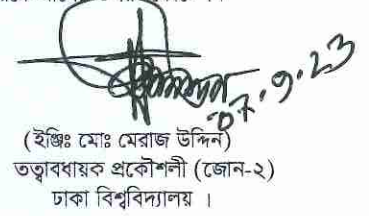 07.9.23
(ইঞ্জিঃ মোঃ মেরাজ উদ্দিন)
তত্ত্বাবধায়ক প্রকৌশলী (জোন-২)
ঢাকা বিশ্ববিদ্যালয় ।